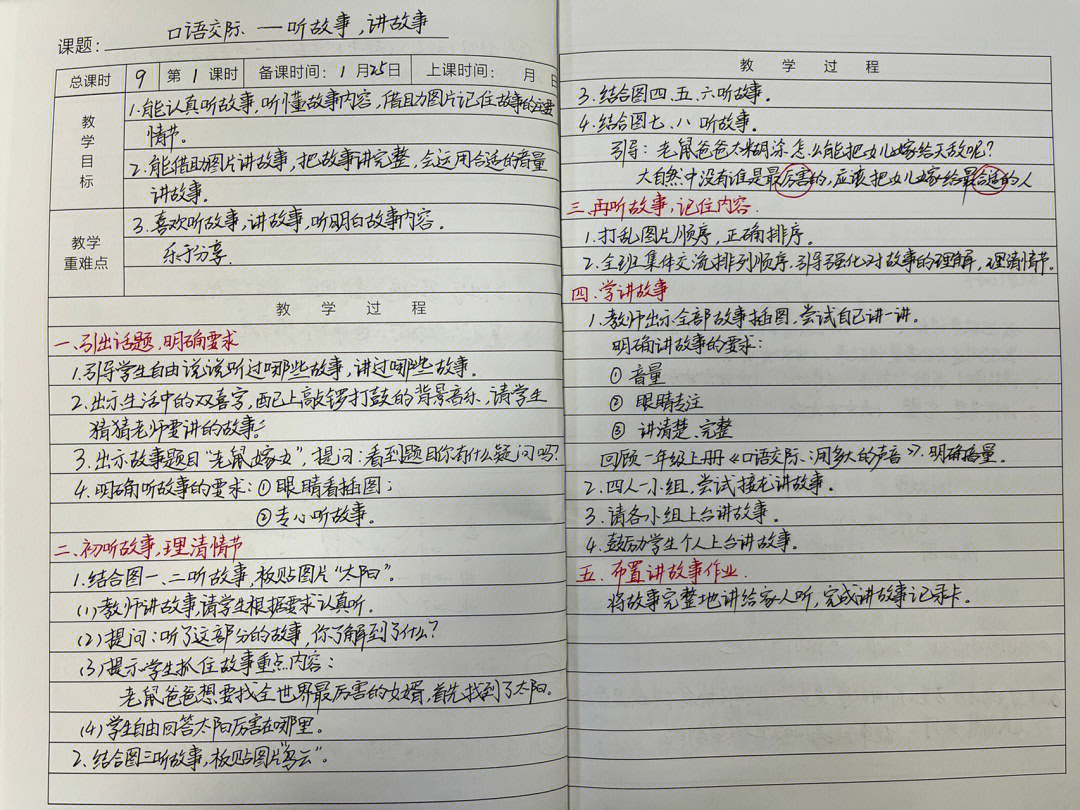 课题: 口语交际 — 听故事，讲故事
总课时 9 第 1 课时 备课时间: 1 月 25 日 上课时间: 月 日
教学目标
1.能认真听故事，听懂故事内容，借助图片记住故事的主要
情节。
2.能借助图片讲故事，把故事讲完整，会运用合适的音量
讲故事。
教学重难点
3.喜欢听故事，讲故事，听明白故事内容。
乐于分享.
教 学 过 程
一、引出话题，明确要求
1.引导学生自由说说听过哪些故事，讲过哪些故事。
2.出示生活中的双喜字，配上敲锣打鼓的背景音乐，请学生
猜猜老师要讲的故事。
3.出示故事题目"老鼠嫁女"，提问：看到题目你有什么疑问吗？
4.明确听故事的要求：①眼睛看插图；
②专心听故事。
二、初听故事，理清情节
1.结合图一、二听故事，板贴图片"太阳"。
(1)教师讲故事，请学生根据要求认真听.
(2)提问：听了这部分的故事，你了解到了什么？
(3)提示学生抓住故事重点内容：
老鼠爸爸想要找全世界最厉害的女婿，首先找到了太阳。
(4)学生自由回答太阳厉害在哪里.
2.结合图三听故事，板贴图片"乌云"。
教 学 过 程
3.结合图四、五、六听故事。
4.结合图七、八听故事。
引导：老鼠爸爸太糊涂怎么能把女儿嫁给天敌呢？
大自然中没有谁是最厉害的，应该把女儿嫁给最合适的人
三.再听故事，记住内容.
1.打乱图片顺序，正确排序。
2.全班集体交流排列顺序.引导强化对故事的理解，理清情节。
四、学讲故事
1.教师出示全部故事插图，尝试自己讲一讲.
明确讲故事的要求：
① 音量
② 眼睛专注
③ 讲清楚、完整
回顾一年级上册《口语交际：用多大的声音》.明确音量.
2.四人一小组，尝试接龙讲故事。
3.请各小组上台讲故事。
4.鼓励学生个人上台讲故事。
五、布置讲故事作业.
将故事完整地讲给家人听，完成讲故事记录卡。